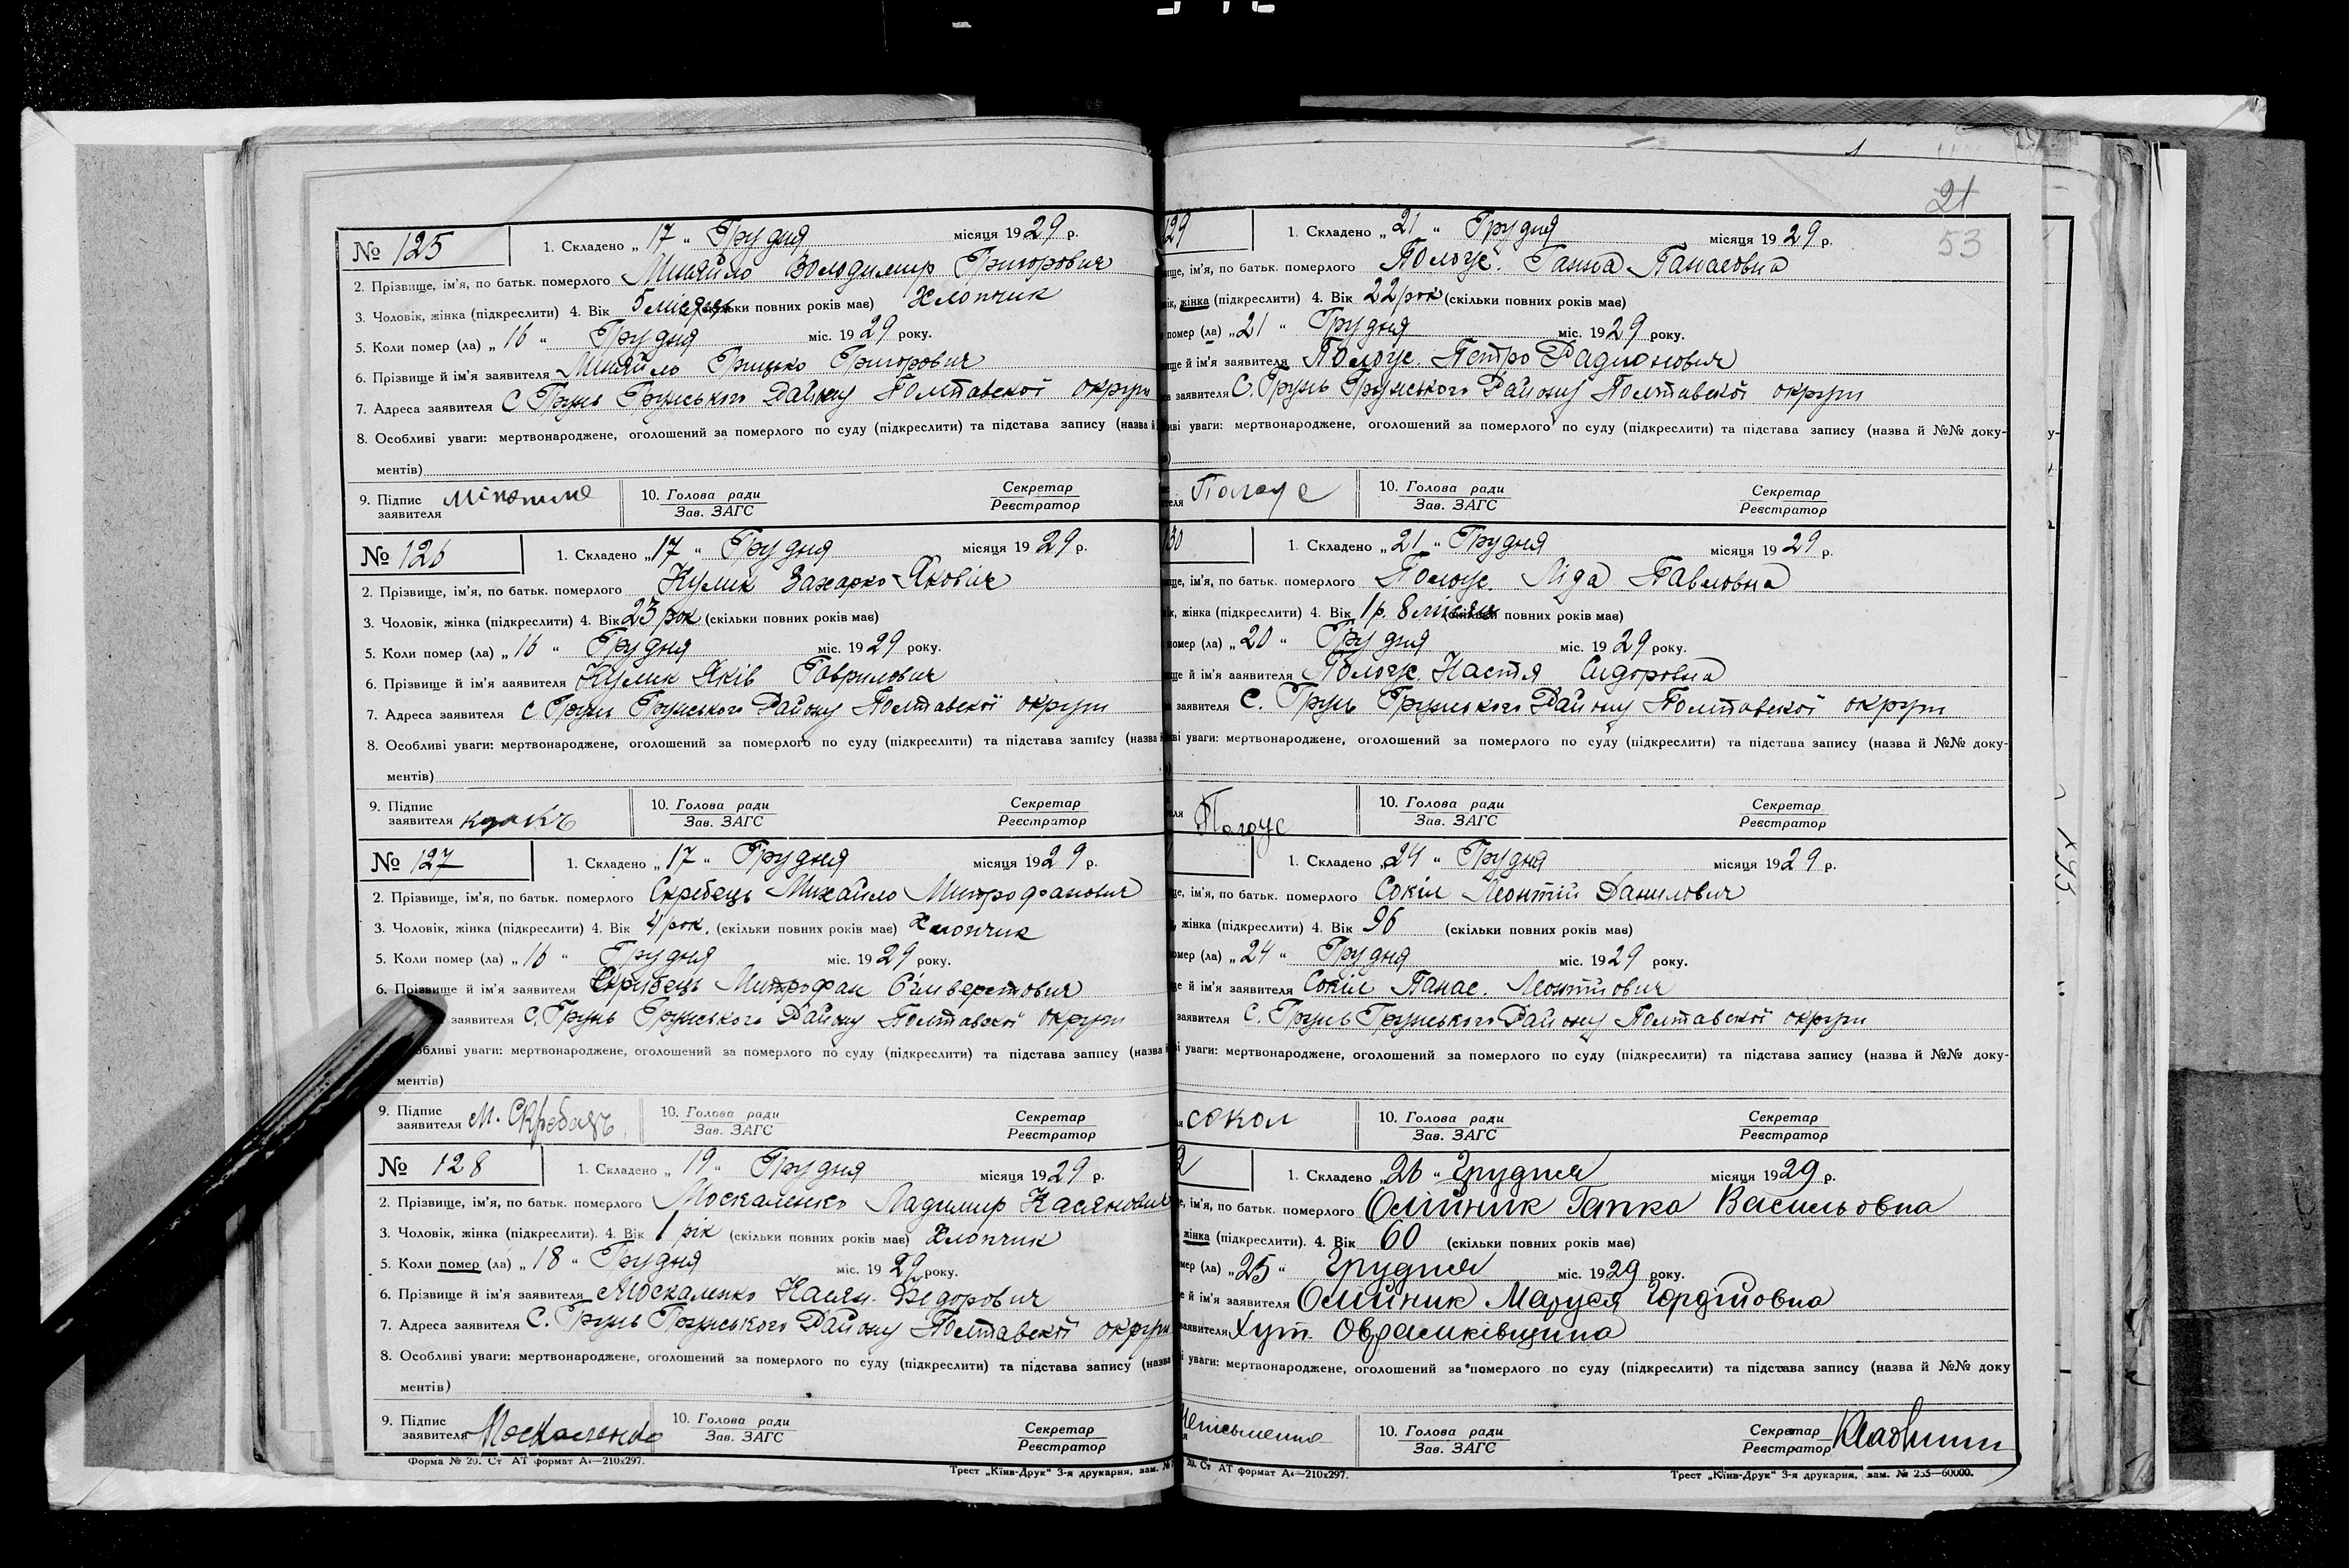 21
53
№ 125
1. Складено „ 17 “ Грудня місяця 1929 р.
2. Прізвище, ім'я, по батьк. померлого Міняйло Володимир Григорович
3. Чоловік, жінка (підкреслити) 4. Вік 5 місяць (скільки повних років має) Хлопчик
5. Коли помер (ла) „ 16 “ Грудня міс. 1929 року.
6. Прізвище й ім'я заявителя Міняйло Грицько Григорович
7. Адреса заявителя С Грунь Грунського Району Полтавської округи
8. Особливі уваги: мертвонароджене, оголошений за померлого по суду (підкреслити) та підстава запису (назва й
ментів)
9. Підпис заявителя
10. Голова ради
Зав. ЗАГС
Секретар
Реєстратор
№ 126
1. Складено „ 17 “ Грудня місяця 1929 р.
2. Прізвище, ім'я, по батьк. померлого Кулик Захарко Якович
3. Чоловік, жінка (підкреслити) 4. Вік 23 рок (скільки повних років має)
5. Коли помер (ла) „ 16 “ Грудня міс. 1929 року.
6. Прізвище й ім'я заявителя Кулик Яків Гаврилович
7. Адреса заявителя с Грунь Грунського Району Полтавської округи
8. Особливі уваги: мертвонароджене, оголошений за померлого по суду (підкреслити) та підстава запису (назва й
ментів)
9. Підпис заявителя
10. Голова ради
Зав. ЗАГС
Секретар
Реєстратор
№ 127
1. Складено „ 17 “ Грудня місяця 1929 р.
2. Прізвище, ім'я, по батьк. померлого Скребець Михайло Митрофанович
3. Чоловік, жінка (підкреслити) 4. Вік 4 рок. (скільки повних років має) Хлопчик
5. Коли помер (ла) „ 16 “ Грудня міс. 1929 року.
6. Прізвище й ім'я заявителя Скребець Митрофан Сільверстович
заявителя С. Грунь Грунського Району Полтавської округи
обливі уваги: мертвонароджене, оголошений за померлого по суду (підкреслити) та підстава запису (назва й
ментів)
9. Підпис заявителя М. Скребець
10. Голова ради
Зав. ЗАГС
Секретар
Реєстратор
№ 128
1. Складено „ 19 “ Грудня місяця 1929 р.
2. Прізвище, ім'я, по батьк. померлого Москаленко Ладимир Касянович
3. Чоловік, жінка (підкреслити). 4. Вік 1 рік (скільки повних років має) Хлопчик
5. Коли помер (ла) „ 18 “ Грудня міс. 1929 року.
6. Прізвище й ім'я заявителя Москаленко Касян Федорович
7. Адреса заявителя С. Грунь Грунського Району Полтавської округи
8. Особливі уваги: мертвонароджене, оголошений за померлого по суду (підкреслити) та підстава запису (назва
ментів)
9. Підпис заявителя Москаленко
10. Голова ради
Зав. ЗАГС
Секретар
Реєстратор
Форма № 20. Ст АТ формат А4—210х297.
Трест „Київ-Друк“ 3-я друкарня, зам. №
129
1. Складено „ 21 “ Грудня місяця 1929 р.
ище, ім'я, по батьк. померлого Пологе. Ганна Панасовна
ік, жінка (підкреслити) 4. Вік 22 рок (скільки повних років має)
помер (ла) „ 21 “ Грудня міс. 1929 року.
ище й ім'я заявителя Пологе. Петро Радионович
заявителя С. Грунь Грунського Району Полтавської округи
иві уваги: мертвонароджене, оголошений за померлого по суду (підкреслити) та підстава запису (назва й №№ доку-
10. Голова ради
Зав. ЗАГС
Секретар
Реєстратор
130
1. Складено „ 21 “ Грудня місяця 1929 р.
ище, ім'я, по батьк. померлого Пологе. Ліда Павловна
ік, жінка (підкреслити) 4. Вік 1 р. 8 місяць (скільки повних років має)
помер (ла) „ 20 “ Грудня міс. 1929 року.
ище й ім'я заявителя Пологе. Настя Сидоровна
заявителя С. Грунь Грунського Району Полтавської округи
ві уваги: мертвонароджене, оголошений за померлого по суду (підкреслити) та підстава запису (назва й №№ доку-
10. Голова ради
Зав. ЗАГС
Секретар
Реєстратор
1. Складено „ 24 “ Грудня місяця 1929 р.
ще, ім'я, по батьк. померлого Сокіл Леонтій Данилович
жінка (підкреслити) 4. Вік 96 (скільки повних років має)
омер (ла) „ 24 “ Грудня міс. 1929 року.
ще й ім'я заявителя Сокіл Панас. Леонтійович
заявителя С. Грунь Грунського Району Полтавської округи
і уваги: мертвонароджене, оголошений за померлого по суду (підкреслити) та підстава запису (назва й №№ доку-
сокол
10. Голова ради
Зав. ЗАГС
Секретар
Реєстратор
2
1. Складено „ 26 “ Грудня місяця 1929 р.
е, ім'я, по батьк. померлого Олійник Гапка Васильовна
жінка (підкреслити). 4. Вік 60 (скільки повних років має)
мер (ла) „ 25 “ Грудня міс. 1929 року.
е й ім'я заявителя Олійник Маруся Юрдійовна
заявителя Хут. Овраміківщина
і уваги: мертвонароджене, оголошений за померлого по суду (підкреслити) та підстава запису (назва й №№ доку
Неписьменна
10. Голова ради
Зав. ЗАГС
Секретар
Реєстратор
20. Ст АТ формат А4—210х297.
Трест „Київ-Друк“ 3-я друкарня, зам. № 235—60000.